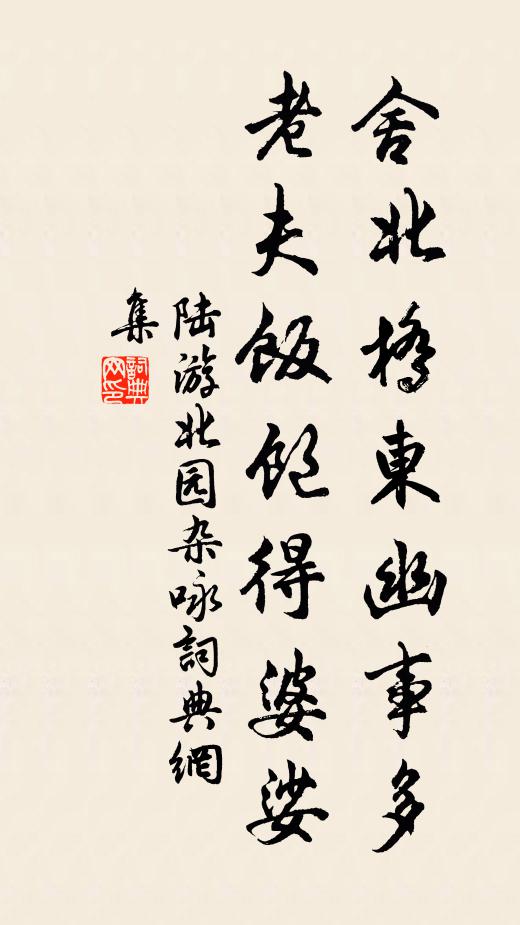 舍北橋東幽事多
老夫飯飽得婆娑
陆游北园杂咏詞典網
集
詞典網印